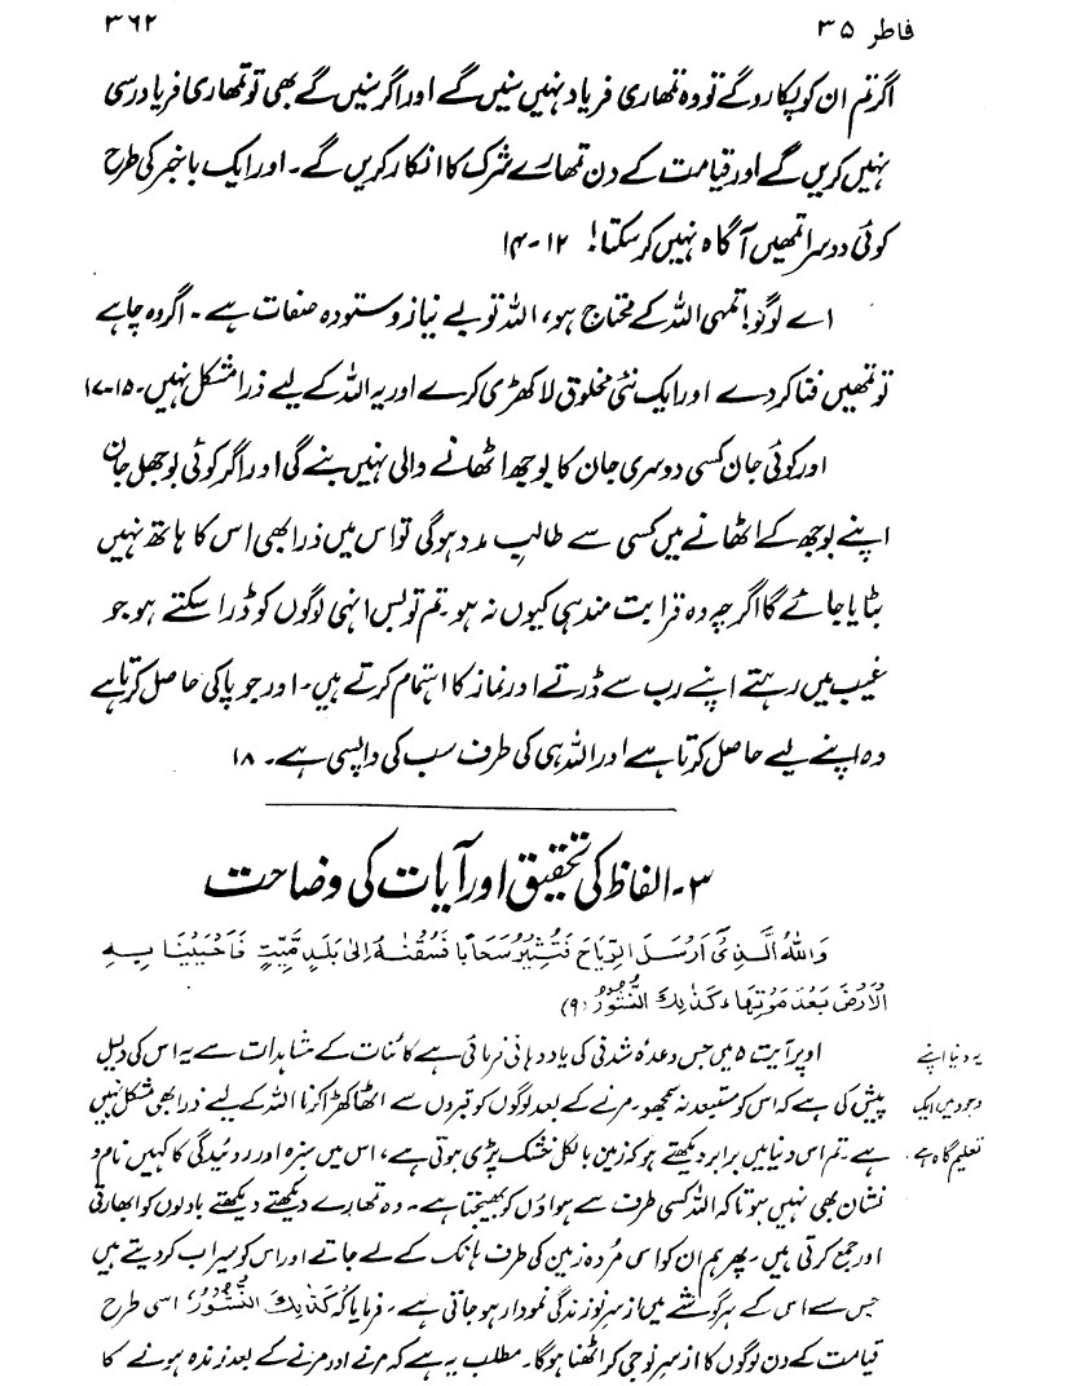 فاطر ۳۵
۳۶۲
اگر تم ان کو پکارو گے تو وہ تمھاری فریاد نہیں سنیں گے اور اگر سنیں گے بھی تو تمھاری فریاد رسی
نہیں کریں گے اور قیامت کے دن تمھارے شرک کا انکار کریں گے۔ اور ایک باخبر کی طرح
کوئی دوسرا تمھیں آگاہ نہیں کر سکتا! ۱۲-۱۴
اے لوگو! تمہی اللہ کے محتاج ہو، اللہ تو بے نیاز و ستودہ صفات ہے۔ اگر وہ چاہے
تو تمھیں فنا کر دے اور ایک نئی مخلوق لا کھڑی کرے اور یہ اللہ کے لیے ذرا مشکل نہیں۔ ۱۵-۱۷
اور کوئی جان کسی دوسری جان کا بوجھ اٹھانے والی نہیں بنے گی اور اگر کوئی بوجھل جان
اپنے بوجھ کے اٹھانے میں کسی سے طالبِ مدد ہوگی تو اس میں ذرا بھی اس کا ہاتھ نہیں
بٹایا جائے گا اگرچہ وہ قرابت مند ہی کیوں نہ ہو۔ تم تو بس انہی لوگوں کو ڈرا سکتے ہو جو
غیب میں رہتے اپنے رب سے ڈرتے اور نماز کا اہتمام کرتے ہیں۔ اور جو پاکی حاصل کرتا ہے
وہ اپنے لیے حاصل کرتا ہے اور اللہ ہی کی طرف سب کی واپسی ہے۔ ۱۸
۳۔ الفاظ کی تحقیق اور آیات کی وضاحت
وَاللهُ الَّذِیْۤ اَرْسَلَ الرِّیٰحَ فَتُثِیْرُ سَحَابًا فَسُقْنٰهُ اِلٰی بَلَدٍ مَّیِّتٍ فَاَحْیَیْنَا بِهِ
الْاَرْضَ بَعْدَ مَوْتِهَا ؕ كَذٰلِكَ النُّشُوْرُ (۹)
اوپر آیت ۵ میں جس وعدۂ شدنی کی یاد دہانی فرمائی ہے کائنات کے مشاہدات سے یہ اس کی دلیل
پیش کی ہے کہ اس کو مستبعد نہ سمجھو۔ مرنے کے بعد لوگوں کو قبروں سے اٹھا کھڑا کرنا اللہ کے لیے ذرا بھی مشکل نہیں
ہے۔ تم اس دنیا میں برابر دیکھتے ہو کہ زمین بالکل خشک پڑی ہوتی ہے، اس میں سبزہ اور روئیدگی کا کہیں نام و
نشان بھی نہیں ہوتا کہ اللہ کسی طرف سے ہواؤں کو بھیجتا ہے۔ وہ تمھارے دیکھتے دیکھتے بادلوں کو ابھارتی
اور جمع کرتی ہیں۔ پھر ہم ان کو اسی مُردہ زمین کی طرف ہانک کے لے جاتے اور اس کو سیراب کر دیتے ہیں
جس سے اس کے ہر گوشے میں از سرِ نو زندگی نمودار ہو جاتی ہے۔ فرمایا کہ كَذٰلِكَ النُّشُوْرُ، اسی طرح
قیامت کے دن لوگوں کا از سرِ نو جی کر اٹھنا ہوگا۔ مطلب یہ ہے کہ مرنے اور مرنے کے بعد زندہ ہونے کا
یہ دنیا اپنے
وجود میں ایک
تعلیم گاہ ہے